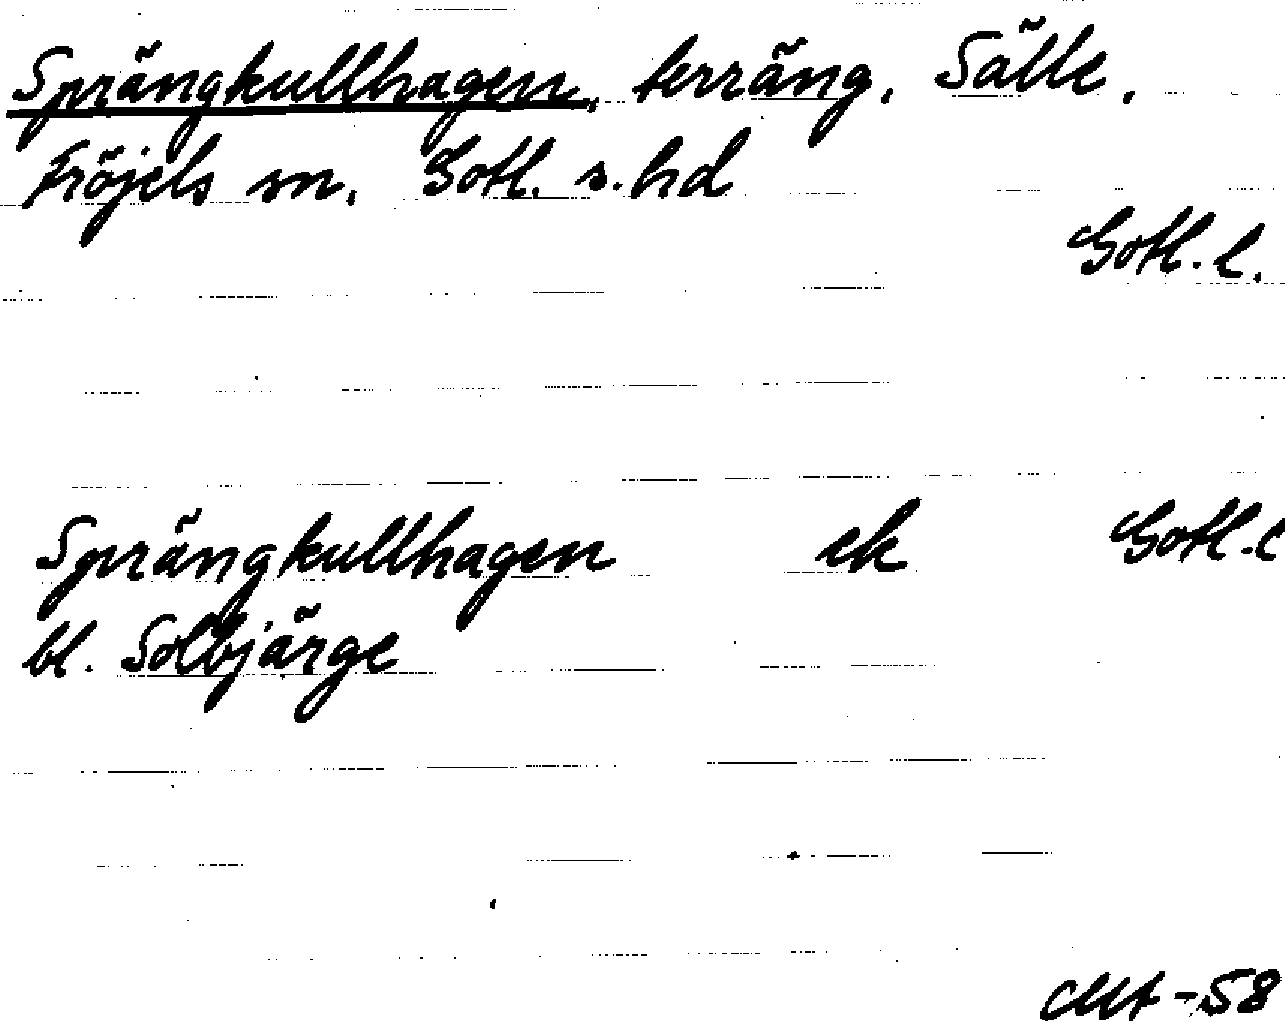 Sprängkullhagen, terräng, Sälle,
Fröjels sn, Gotl. s. hd
Gotl. l.
Sprängkullhagen ek Gotl. l
bl. Solbjärge
-58